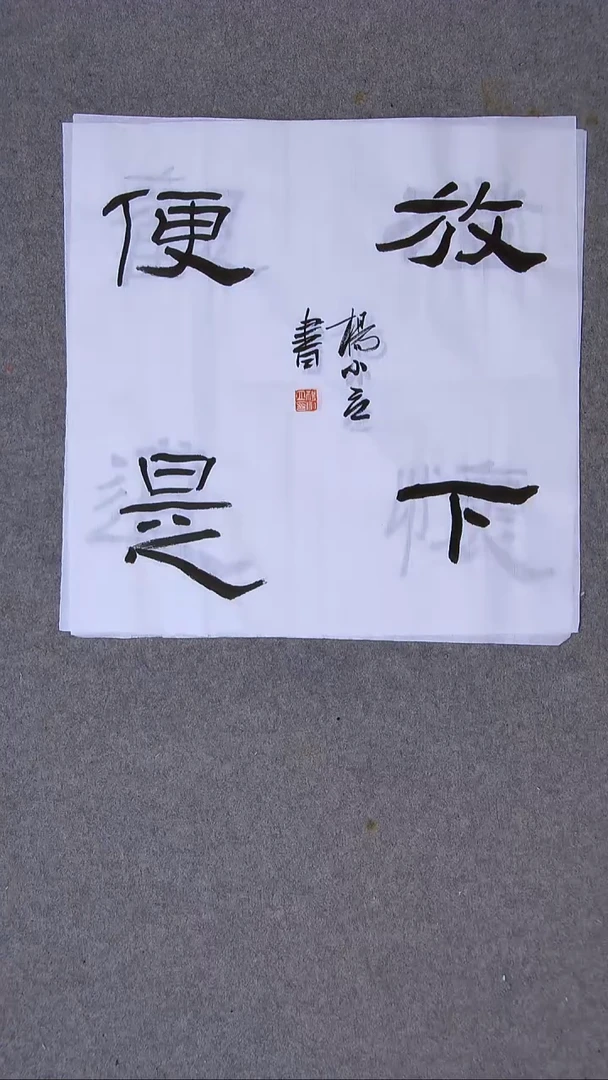 放下
便是
楊小立
書